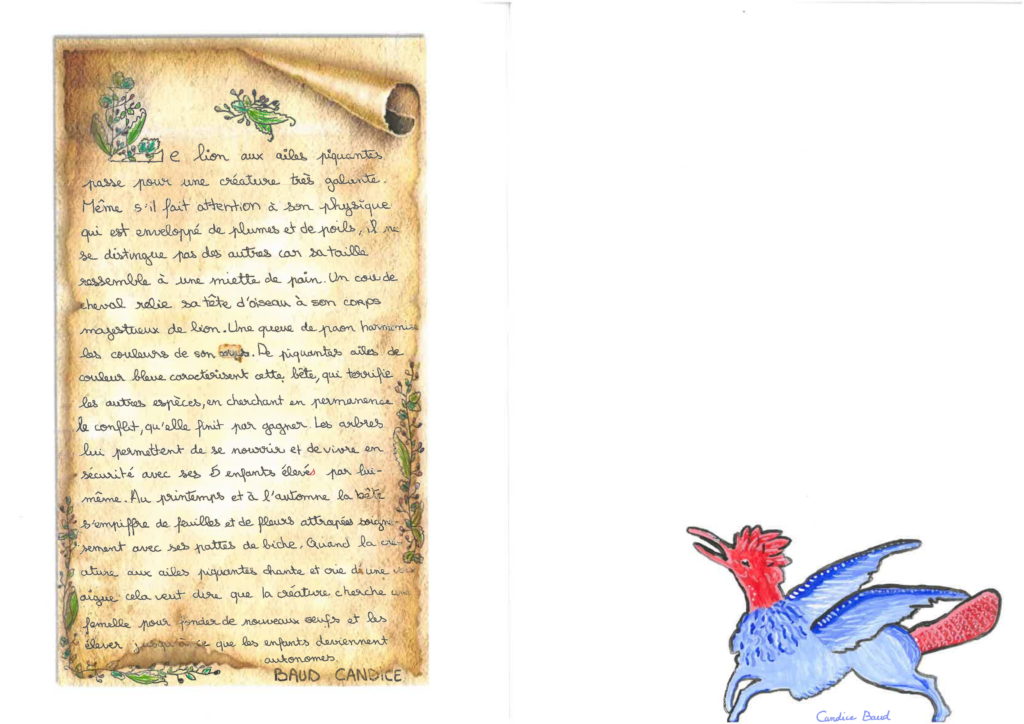 Le lion aux ailes piquantes
passe pour une créature très galante.
Même s'il fait attention à son physique
qui est enveloppé de plumes et de poils, il ne
se distingue pas des autres car sa taille
ressemble à une miette de pain. Un cou de
cheval relie sa tête d'oiseau à son corps
majestueux de lion. Une queue de paon harmonise
les couleurs de son corps. De piquantes ailes de
couleur bleue caractérisent cette bête, qui terrifie
les autres espèces, en cherchant en permanence
le conflit, qu'elle finit par gagner. Les arbres
lui permettent de se nourrir et de vivre en
sécurité avec ses 5 enfants élevés par lui-
même. Au printemps et à l'automne la bête
s'empiffre de feuilles et de fleurs attrapées soigneu-
sement avec ses pattes de biche. Quand la cré-
ature aux ailes piquantes chante et crie de une voix
aigue cela veut dire que la créature cherche une
femelle pour fonder de nouveaux œufs et les
élever jusqu'à ce que les enfants deviennent
autonomes.
BAUD CANDICE
Candice Baud